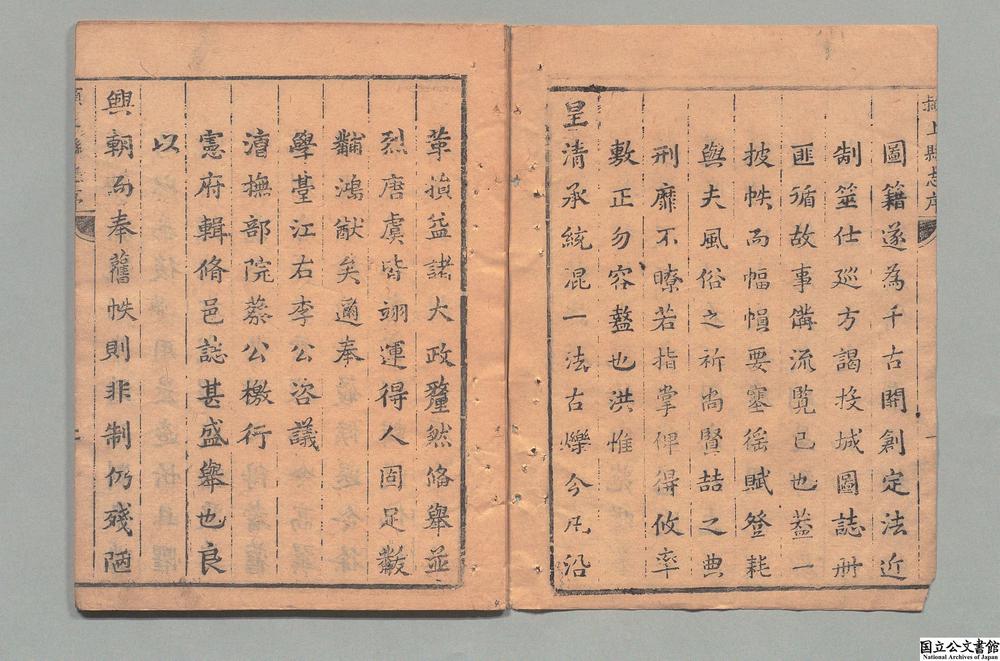 圖籍遂為千古開創定法近
制筮仕廵方謁投城圖誌冊
匪循故事備流覽已也葢一
披帙而幅幀要塞徭賦登耗
與夫風俗之祈尚賢喆之典
刑靡不瞭若指掌俾得攸率
敷正勿容盭也洪惟
呈清承統混一法古爍今凡沿
革損益諸大政釐然偹舉並
烈唐虞皆翊運得人固足黻
黼鴻猷矣邇奉
學臺江右李公咨議
漕撫部院蔡公檄行
憲府輯脩邑誌甚盛舉也良
以
興朝而奉舊帙則非制仍殘陋
上縣志序
國立公文書館
National Archives of Japan